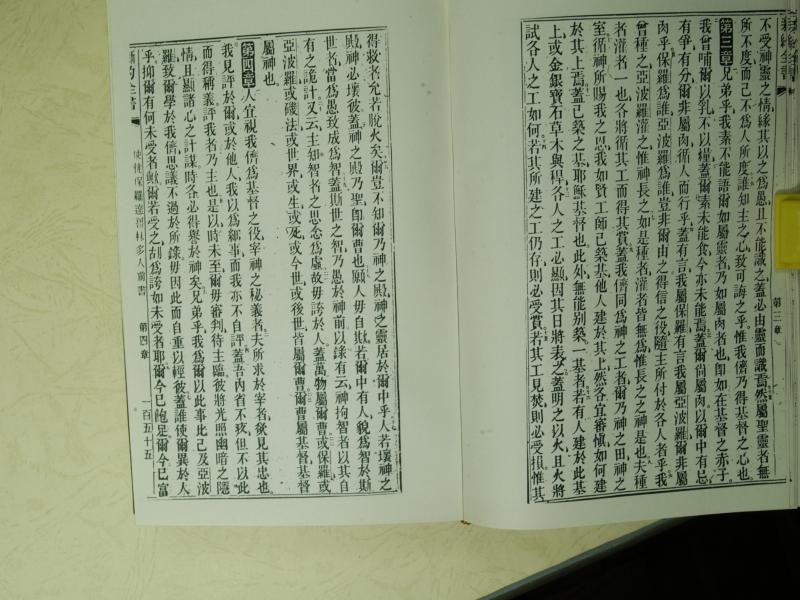 新約全書
第三章
不受神靈之情緣其以之爲愚且不能識之蓋必由靈而識焉然屬聖靈者無
所不度而己不爲人所度誰知主之心致可誨之乎惟我儕乃得基督之心也
第三章兄弟乎我素不能語爾如屬靈者乃如屬肉者也卽如在基督之赤子
我曾哺爾以乳不以糧蓋爾素未能食今亦未能焉蓋爾尙屬肉以爾中有忌
有爭有分爾非屬肉循人而行乎蓋有言我屬保羅有言我屬亞波羅爾非屬
肉乎保羅爲誰亞波羅爲誰豈非爾由之得信之役隨主所付於各人者乎我
曾種之亞波羅灌之惟神長之如是種者灌者皆無爲惟長之之神是也夫種
者灌者一也各將循其工而得其賞蓋我儕同爲神之工者爾乃神之田神之
室循神所賜我之恩我如賢工師已築基他人建於其上然各宜審愼如何建
於其上焉蓋已築之基耶穌基督也此外無能别築一基者若有人建於此基
上或金銀寶石草木與稈各人之工必顯因其日將表之蓋明之以火且火將
試各人之工如何若其所建之工仍存則必受賞若其工見焚則必受損惟其
得救者允若脫火矣爾豈不知爾乃神之殿神之靈居於爾中乎人若壞神之
殿神必壞彼蓋神之殿乃聖卽爾曹也願人毋自欺若爾中有人貌爲智於斯
世者當爲愚致成爲智蓋斯世之智乃愚於神前以錄有云神拘智者以其自
有之詭計又云主知智者之思念爲虛故毋誇於人蓋萬物屬爾曹或保羅或
亞波羅或磯法或世界或生或死或今世或後世皆屬爾曹爾曹屬基督基督
屬神也
第四章人宜視我儕爲基督之役宰神之秘義者夫所求於宰者欲見其忠也
我見評於爾或於他人我以爲鄒事而我亦不自評蓋吾內省不疚但不以此
而得稱義評我者乃主也是以時未至爾毋審判待主臨彼將光照幽暗之隱
情且顯諸心之計謀時各必得譽於神矣兄弟乎我爲爾以此事比己及亞波
羅致爾學於我儕思議不過於所錄毋因此而自重以輕彼蓋誰使爾異於人
乎抑爾有何未受者歟爾若受之胡爲誇如未受者耶爾今已飽足爾今已富
新約全書
使徒保羅達哥林多人前書
第四章
一百五十五